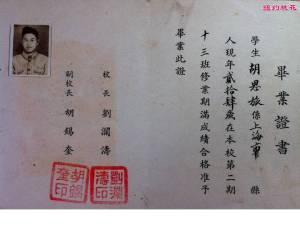 紐約桃花
畢業證書
學生胡思旅係上海市縣
人現年貳拾肆歲在本校第二期
十三班修業期滿成績合格准予
畢業此證
校長劉瀾濤
副校長胡錫奎
劉瀾濤印
胡錫奎印